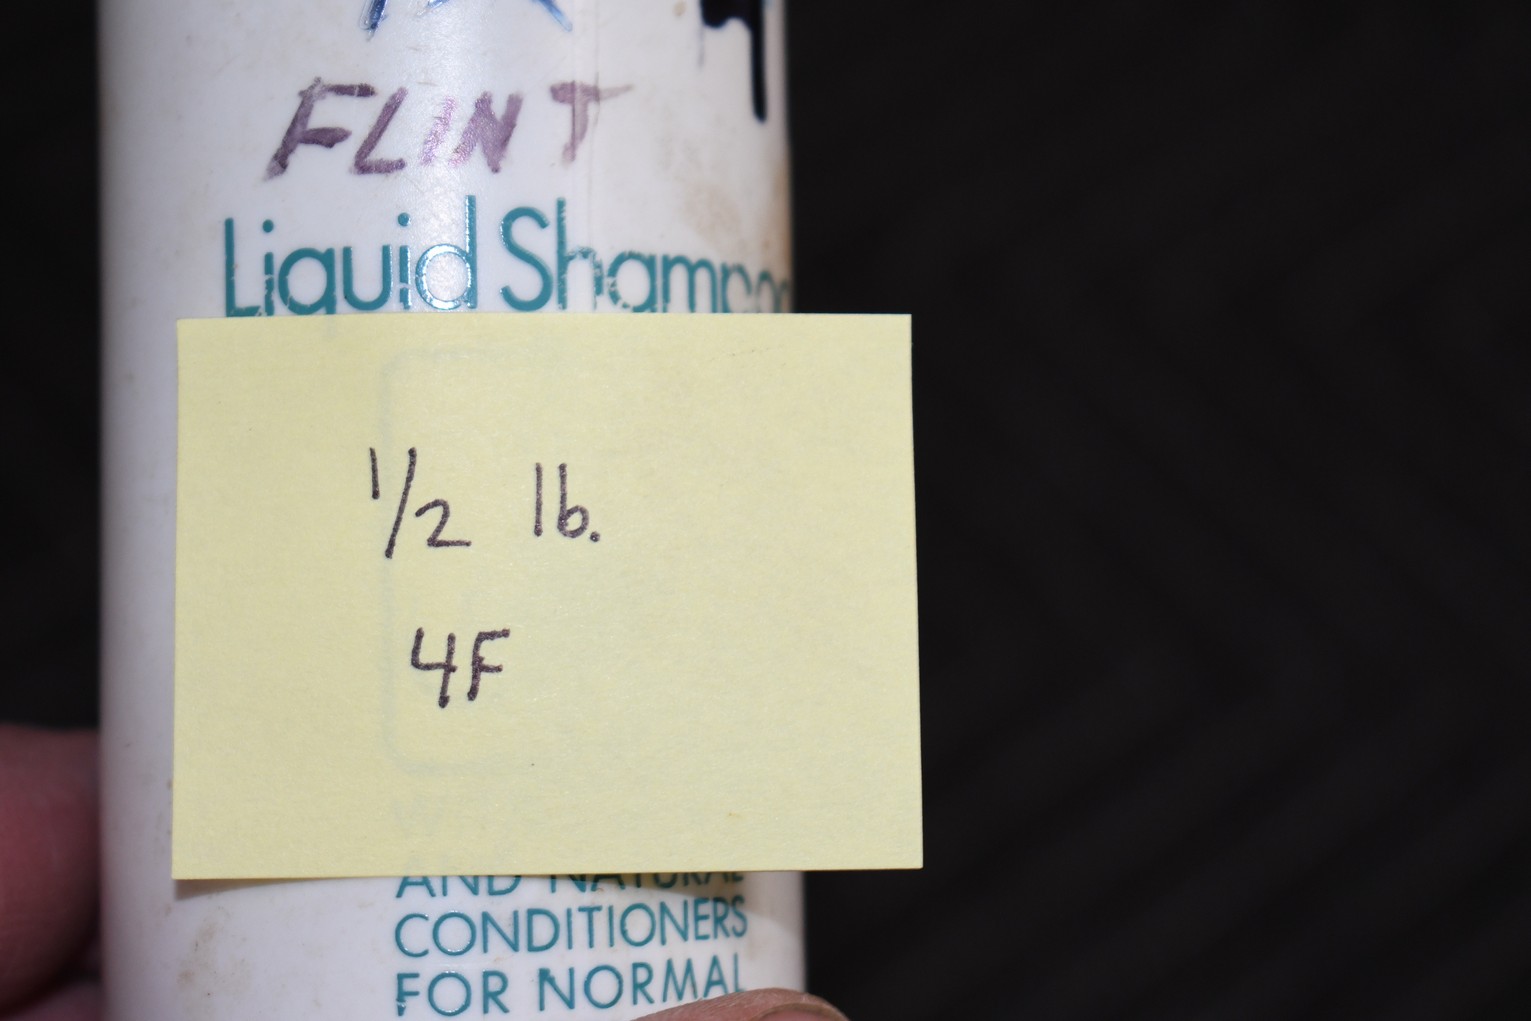 FLINT
Liquid Shampoo
1/2 lb.
4F
AND NATURAL
CONDITIONERS
FOR NORMAL